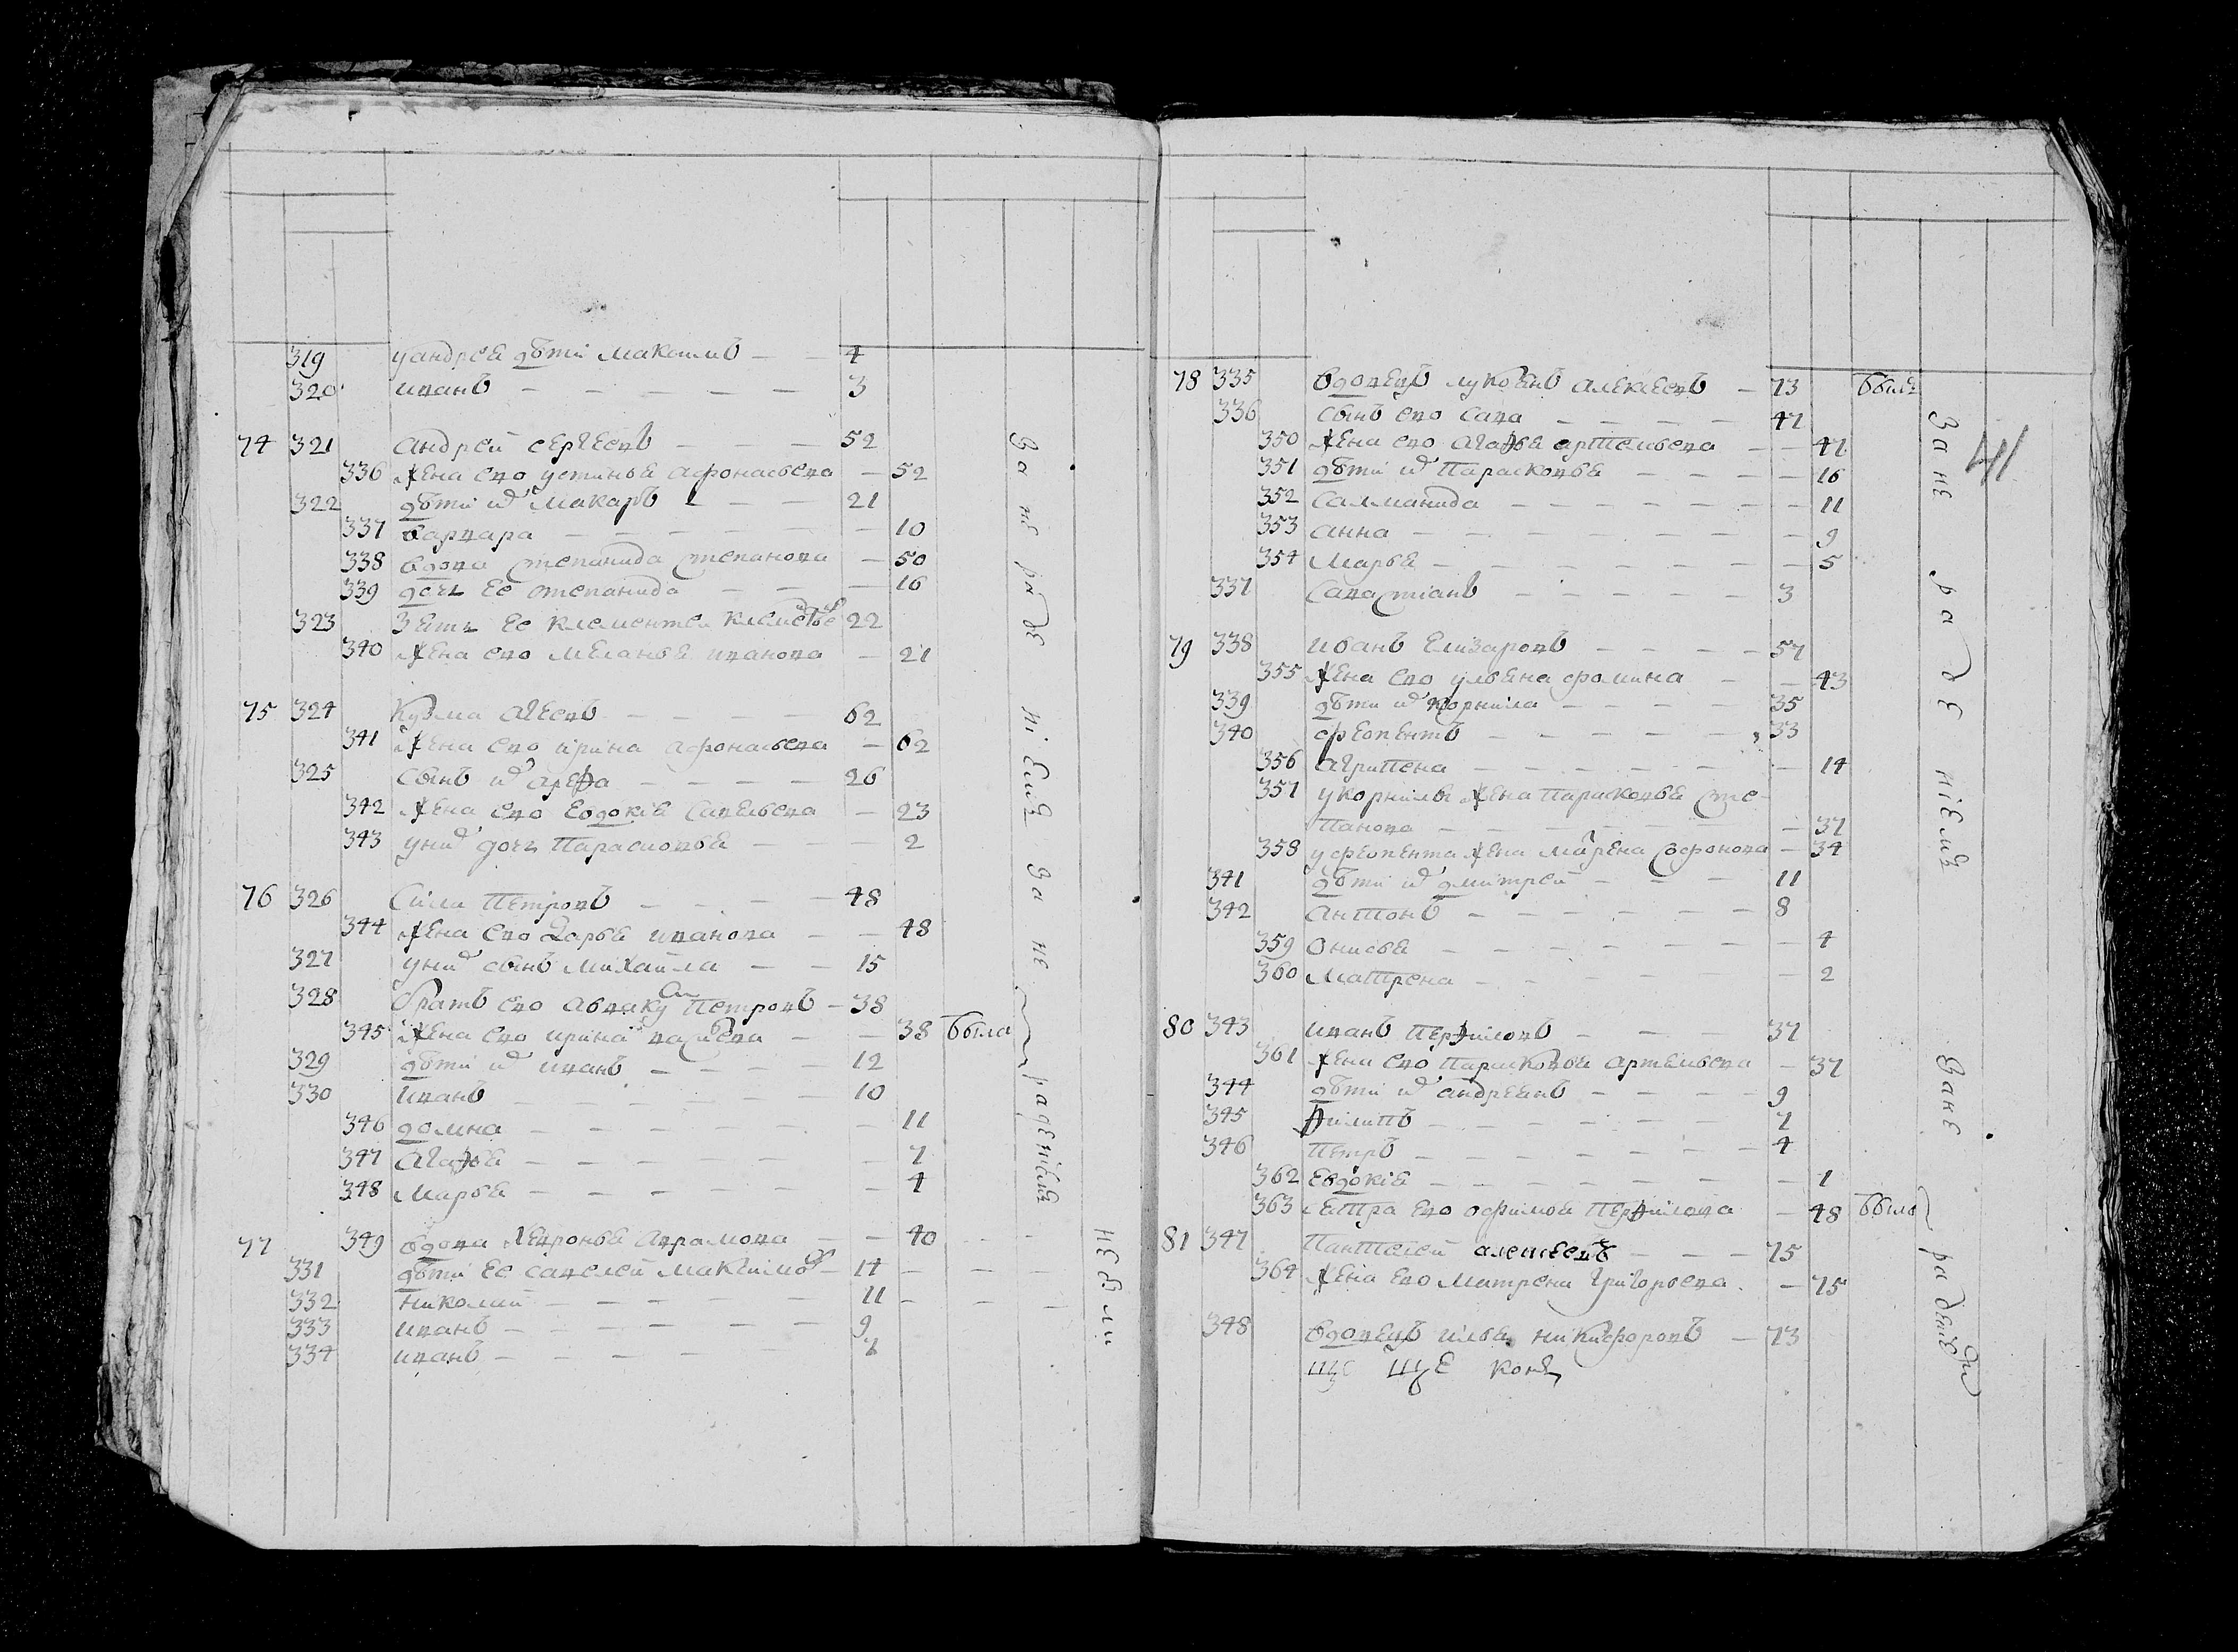 319 у андрея дѣти Максимъ — — 4
320 иванъ — — — — — 3
74 321 андрей сергеевъ — — — 52
336 жена ево устинья афонасьева — 52
322 дѣти их Макаръ — — 21
337 варвара — — — — — 10
338 вдова степанида степанова — 50
339 дочь ее степанида — — — 16
323 Зять ее клементей 22
340 жена ево меланья иванова — 21
75 324 Кузма агеевъ — — — 62
341 жена ево ирина афонасьева — 62
325 сынъ их арефа — — — — 26
342 жена ево Евдокія савельева — 23
343 у них дочь Парасковья — — 2
76 326 Сила Петровъ — — — — 48
344 жена ево Дарья иванова — — 48
327 у них сынъ Михайла — — 15
328 братъ ево авваку м Петровъ — 38
345 жена ево ирина — — 38 была
329 дѣти их иванъ — — — — 12
330 иванъ — — — — — — 10
346 домна — — — — — — 11
347 агафья — — — — — — 7
348 Марья — — — — — — 4
77 349 вдова Хевронья аврамова — — 40
331 дѣти ее савелей Максимов — 14 — — —
332 николай — — — — — 11 — — —
333 иванъ — — — — — — 9
334 иванъ — — — — — 7
За не ра де ніемъ
За не радениемъ
не были
41
78 335 вдовецъ лукьянъ алексеевъ — 73 былъ
336 сынъ ево сава — — — — 47
350 жена ево агафья артемьева — — 47
351 дѣти их Парасковья — — — — 16
352 саламанида — — — — — — — 11
353 анна — — — — — — — — 9
354 Марья — — — — — — — 5
337 Савастіанъ — — — — — 3
79 338 иванъ Елизаровъ — — — — 57
355 жена ево ульяна фомина — — 43
339 дѣти их Корнила — — — — 35
340 ферапентъ — — — — — 33
356 агрипена — — — — — — 14
357 у корнилы жена Парасковья сте-
панова — — — — — — 37
358 у ферапента жена Марена сафонова — 34
341 дѣти их дмитрей — — — 11
342 антонъ — — — — — — 8
359 онисья — — — — — — — 4
360 Матрена — — — — — 2
80 343 иванъ Перфиловъ — — — 37
361 жена ево Парасковья артемьева — 37
344 дѣти их андреянъ — — — 9
345 филипъ — — — — — — 7
346 Петръ — — — — — — — 4
362 евдокія — — — — — — — 1
363 ево офимья Перфилова — 48 была
81 347 Пантелей алексеевъ — — — 75
364 жена ево Матрена григорьева — 75
348 вдовецъ илья никифоровъ — 73
За не ра де ніемъ
За не ра дениемъ